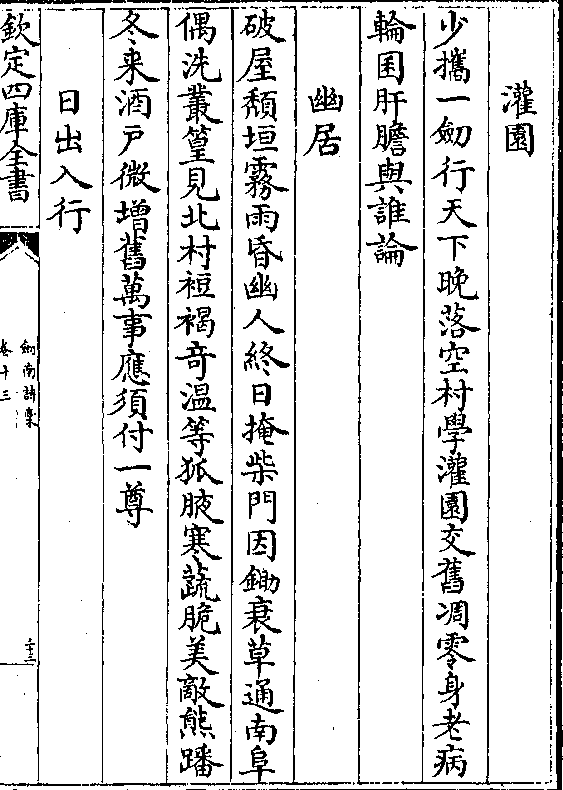 灌園
少攜一劒行天下晚落空村學灌園交舊凋零身老病
輪囷肝膽與誰論
幽居
破屋頽垣霧雨昏幽人終日掩柴門因鋤衰草通南阜
偶洗叢篁見北村裋褐竒温等狐腋寒蔬脆美敵熊蹯
冬来酒戸微增舊萬事應須付一尊
日出入行
欽定四庫全書
劒南詩槀
卷十三